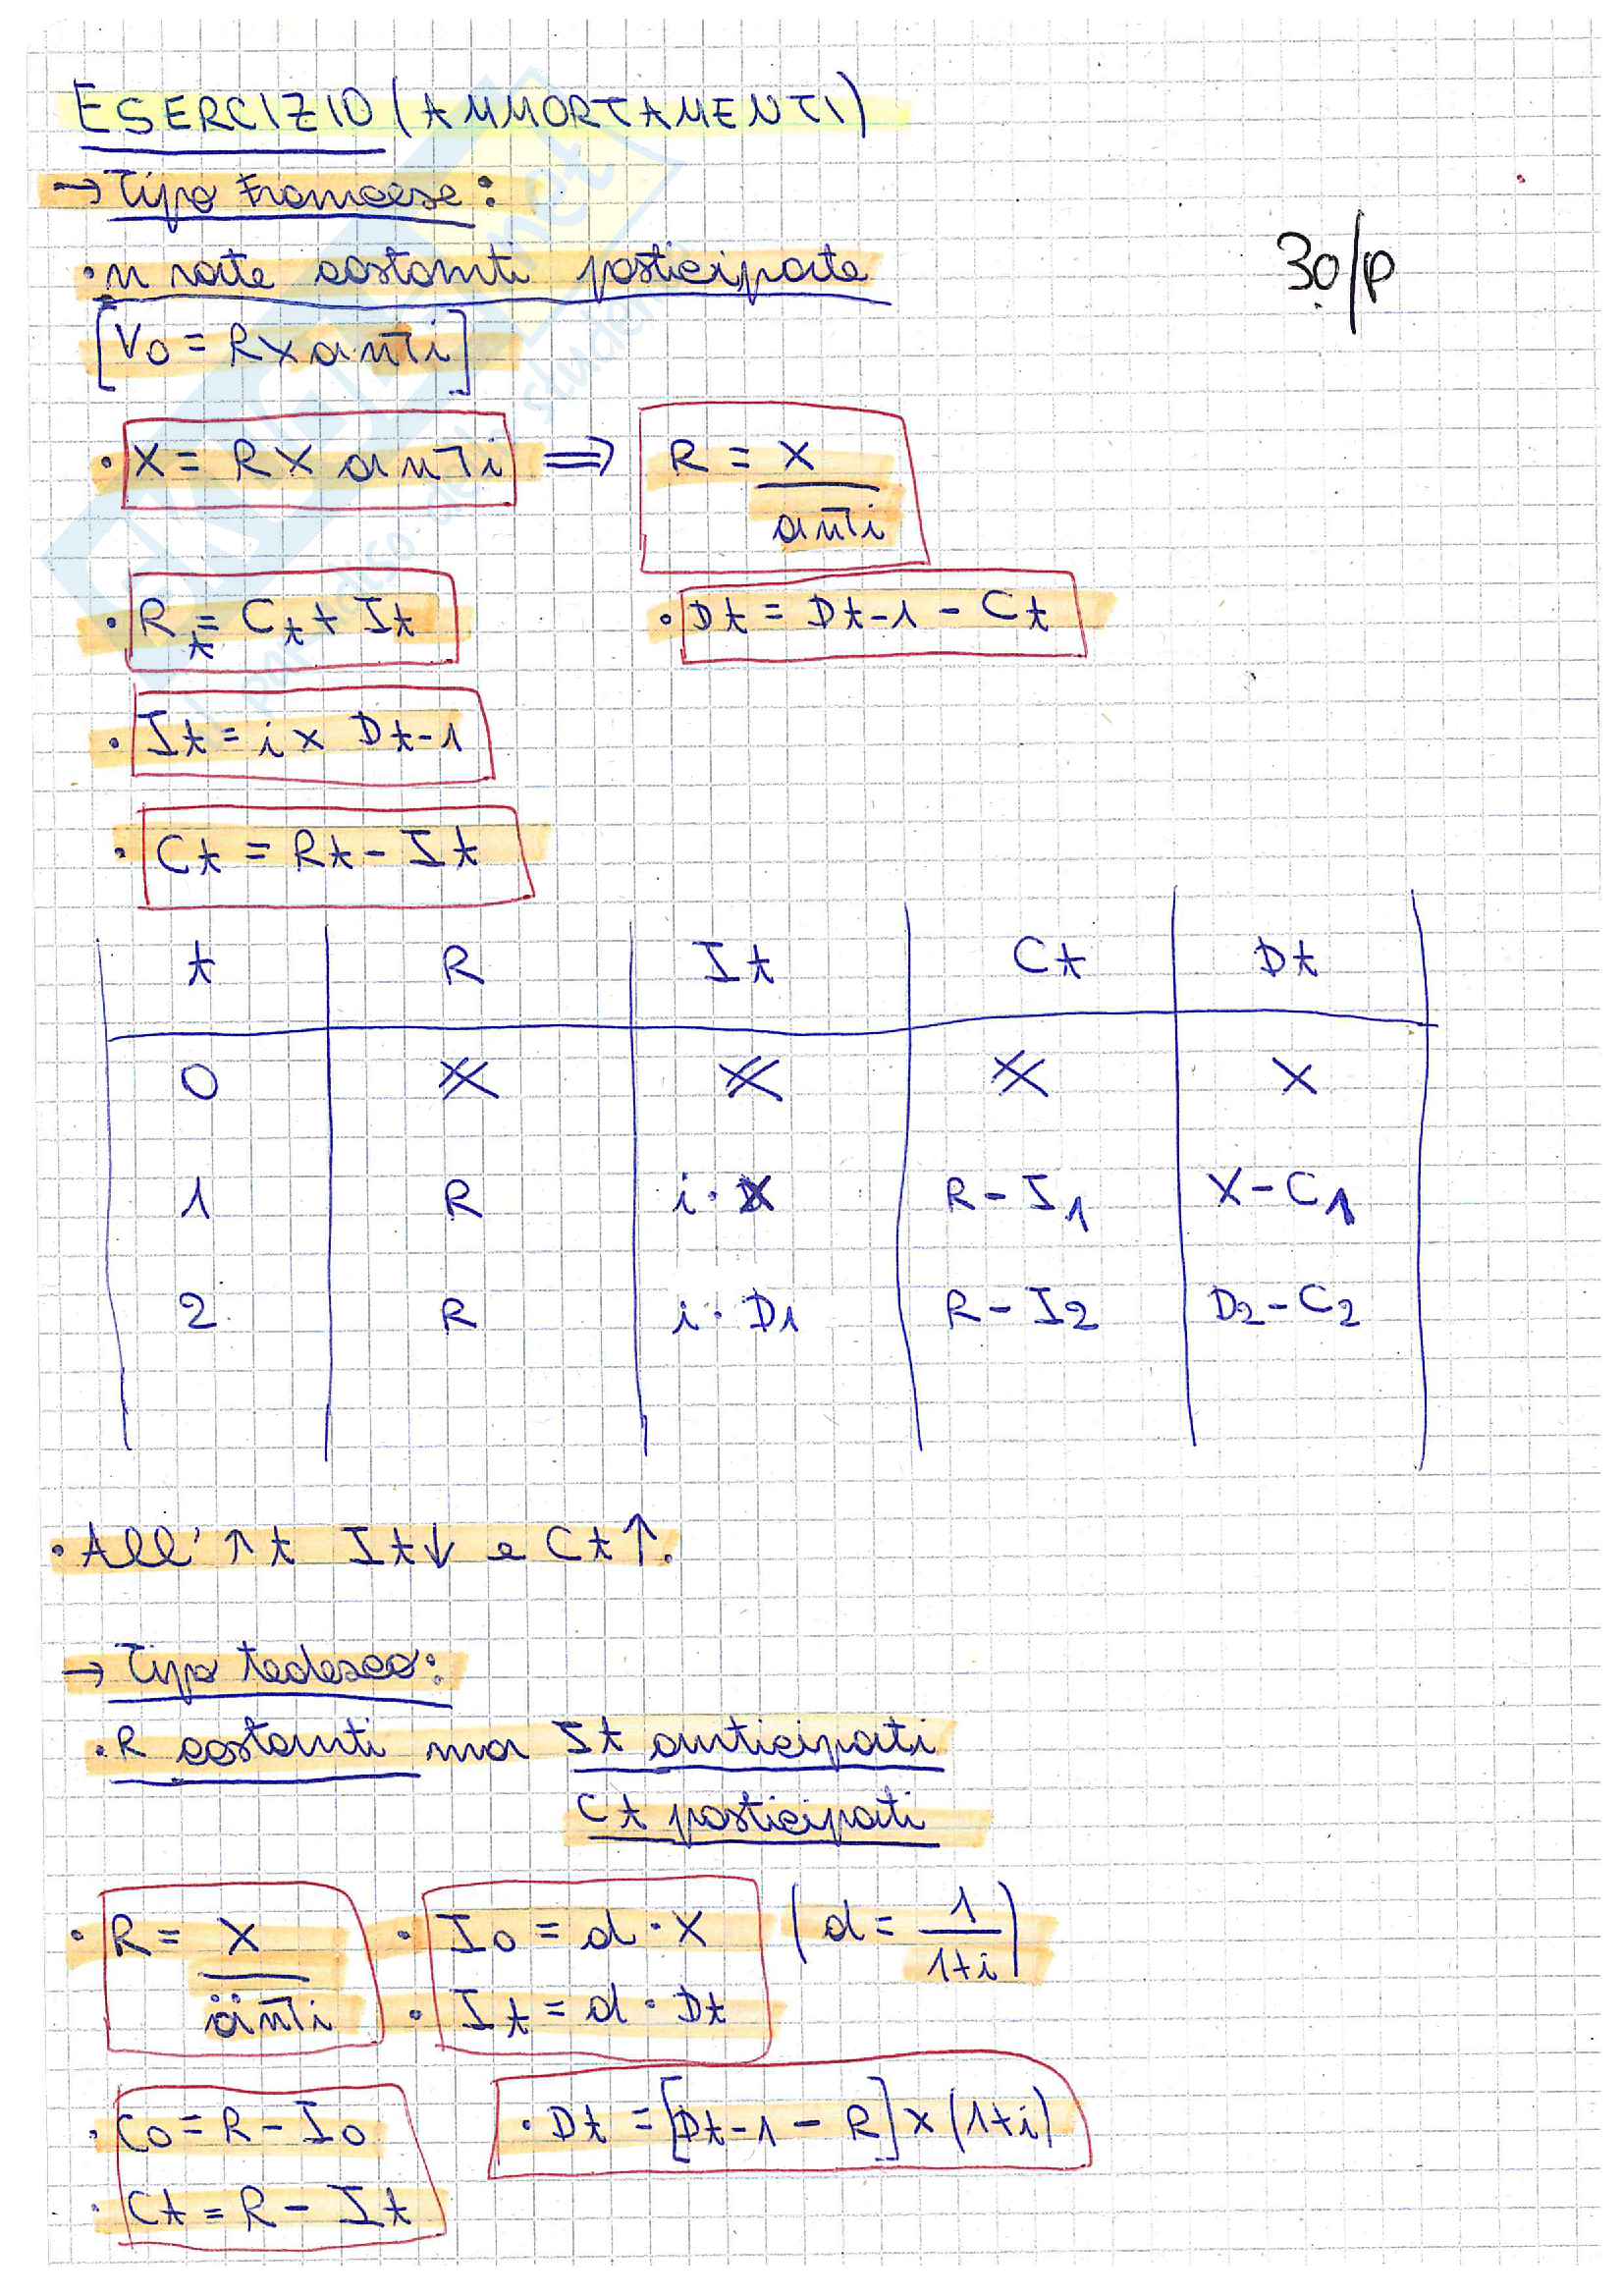 ESERCIZIO (AMMORTAMENTI)
→ Tipo Francese:
30/p
• n rate costanti posticipate
[V0 = R x an̅i]
• X = R x an̅i ⇒ R = X / an̅i
• Rt = Ct + It • Dt = Dt-1 - Ct
• It = i x Dt-1
• Ct = Rt - It
t R It Ct Dt
0 X
1 R i · X R - I1 X - C1
2 R i · D1 R - I2 D2 - C2
• All' ↑ t It ↓ e Ct ↑.
→ Tipo tedesco:
• R costanti ma It anticipati
Ct posticipati
• R = X / än̅i • I0 = d · X (d = 1 / 1+i)
• It = d · Dt
• C0 = R - I0 • Dt = [Dt-1 - R] x (1+i)
• Ct = R - It